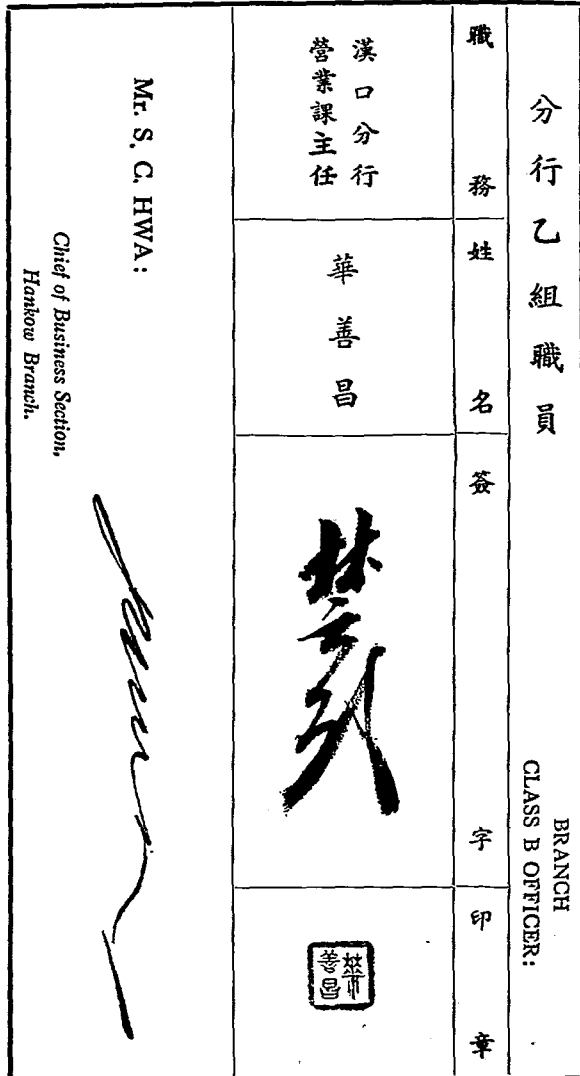 分行乙組職員
BRANCH
CLASS B OFFICER:
職務
姓名
簽字
印章
漢口分行
營業課主任
華善昌
華善昌
Mr. S. C. HWA:
Chief of Business Section,
Hankow Branch.